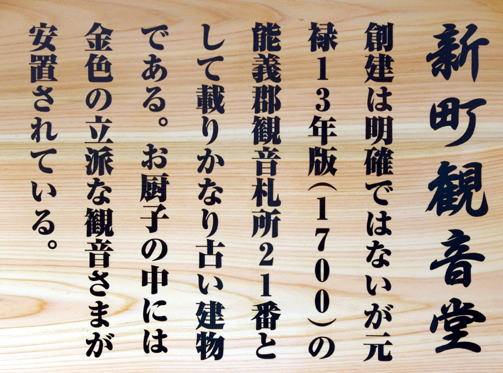 新町観音堂
創建は明確ではないが元
禄13年版(1700)の
能義郡観音札所21番と
して載りかなり古い建物
である。お厨子の中には
金色の立派な観音さまが
安置されている。